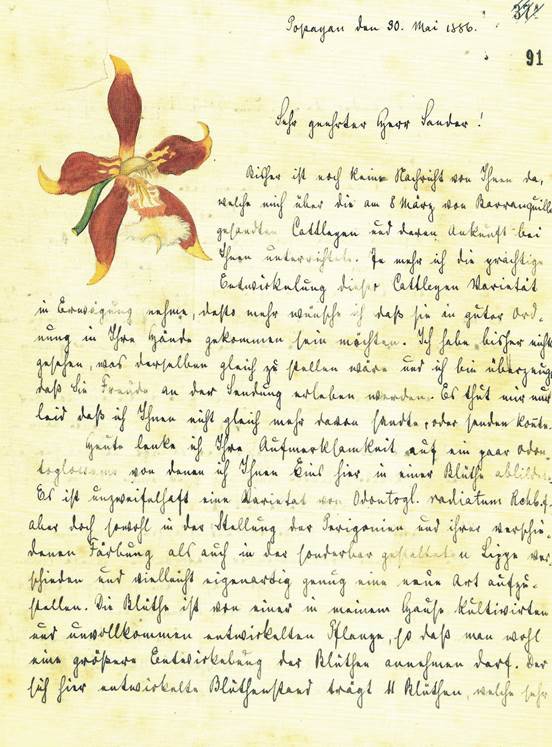 37.
Popayan den 30. Mai 1886.
91
Sehr geehrter Herr Sander!
Bisher ist noch keine Nachricht von Ihnen da,
welche mich über die am 8 März von Barranquilla
gesandten Cattleyen und deren Ankunft bei
Ihnen unterrichtete. Je mehr ich die prächtige
Entwickelung dieser Cattleyen Varietät
in Erwägung nehme, desto mehr wünsche ich daß sie in guter Ord-
nung in Ihre Hände gekommen sein möchten. Ich habe bisher nichts
gesehen, was derselben gleich zu stellen wäre und ich bin überzeugt
daß Sie Freude an der Sendung erleben werden. Es thut mir nur
leid daß ich Ihnen nicht gleich mehr davon sandte, oder senden konte.
Heute lenke ich Ihre Aufmerksamkeit auf ein paar Odon-
toglossums von denen ich Ihnen Eins hier in einer Blüthe abbilde.
Es ist unzweifelhaft eine Varietät von Odontogl. radiatum Rchb.f.
aber doch sowohl in der Stellung der Perigonien und ihrer verschie-
denen Färbung als auch in der sonderbar gestalteten Lippe ver-
schieden und vielleicht eigenartig genug eine neue Art aufzu-
stellen. Die Blüthe ist von einer in meinem Hause kultivirten
und unvollkommen entwickelten Pflanze, so daß man wohl
eine größere Entwickelung der Blüthen annehmen darf. Der
sich hier entwickelte Blüthenstand trägt 11 Blüthen, welche sehr